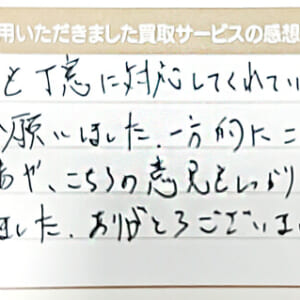 用いただきました買取サービスの感想
と丁寧に対応してくれてい
願いしました。一方的にこ
や、こちらの意見もしっかり
ました。ありがとうございま